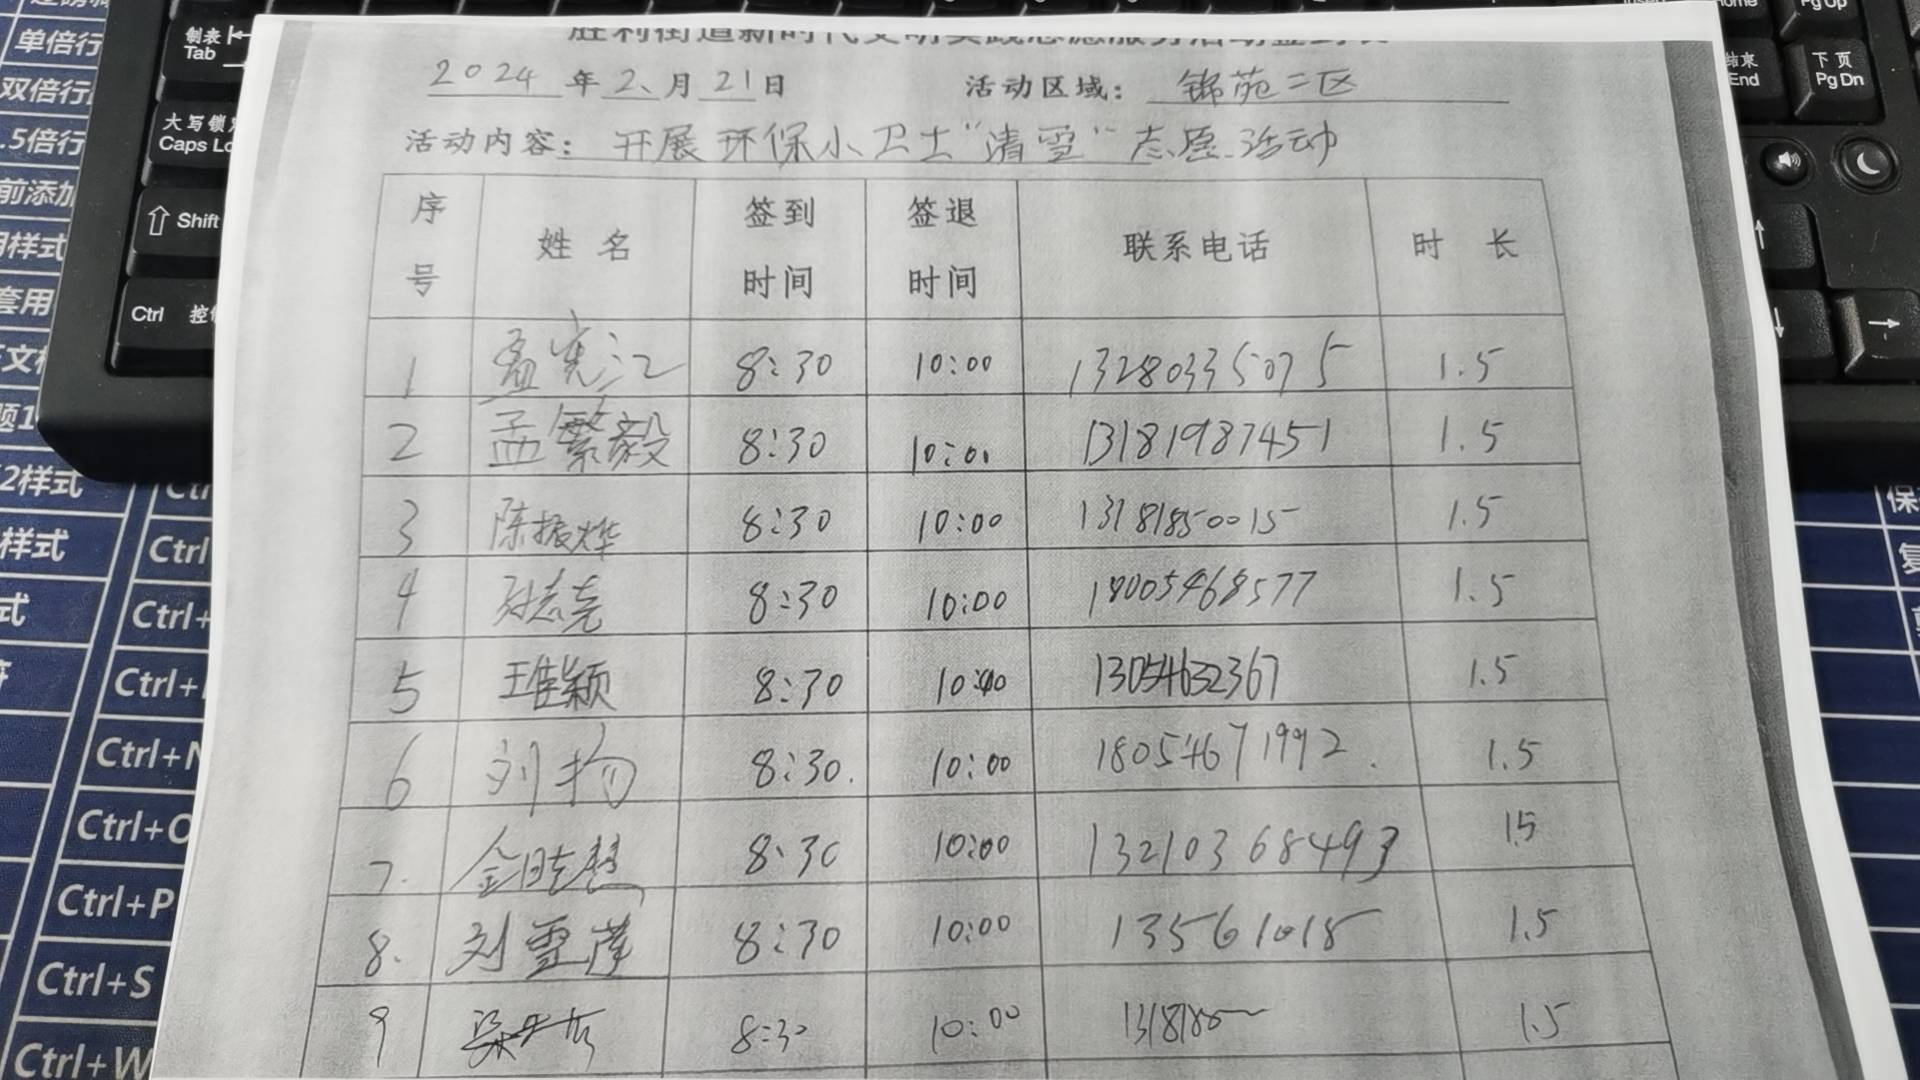 胜利街道新时代文明实践志愿服务活动签到表
2024 年 2 月 21 日 活动区域： 锦苑二区
活动内容： 开展环保小卫士“清雪”志愿活动
序号 姓名 签到时间 签退时间 联系电话 时 长
1 孟宪江 8:30 10:00 13280335075 1.5
2 孟繁毅 8:30 10:00 13181987451 1.5
3 陈振烨 8:30 10:00 13181850015 1.5
4 孙志尧 8:30 10:00 18005468577 1.5
5 王佳颖 8:30 10:00 13054632367 1.5
6 刘扬 8:30. 10:00 18054671992. 1.5
7. 8:30 10:00 13210368493 15
8. 刘雪萍 8:30 10:00 13561018 1.5
9 8:30 10:00 1.5
制表
Tab
大写锁定
Caps Lo
Shift
Ctrl 控制
单倍行
双倍行
.5倍行
前添加
样式
套用
2样式
样式
式
Ctrl
Ctrl+
Ctrl+
Ctrl+N
Ctrl+O
Ctrl+P
Ctrl+S
Ctrl+W
Home
Pg Up
结束
End
下页
Pg Dn